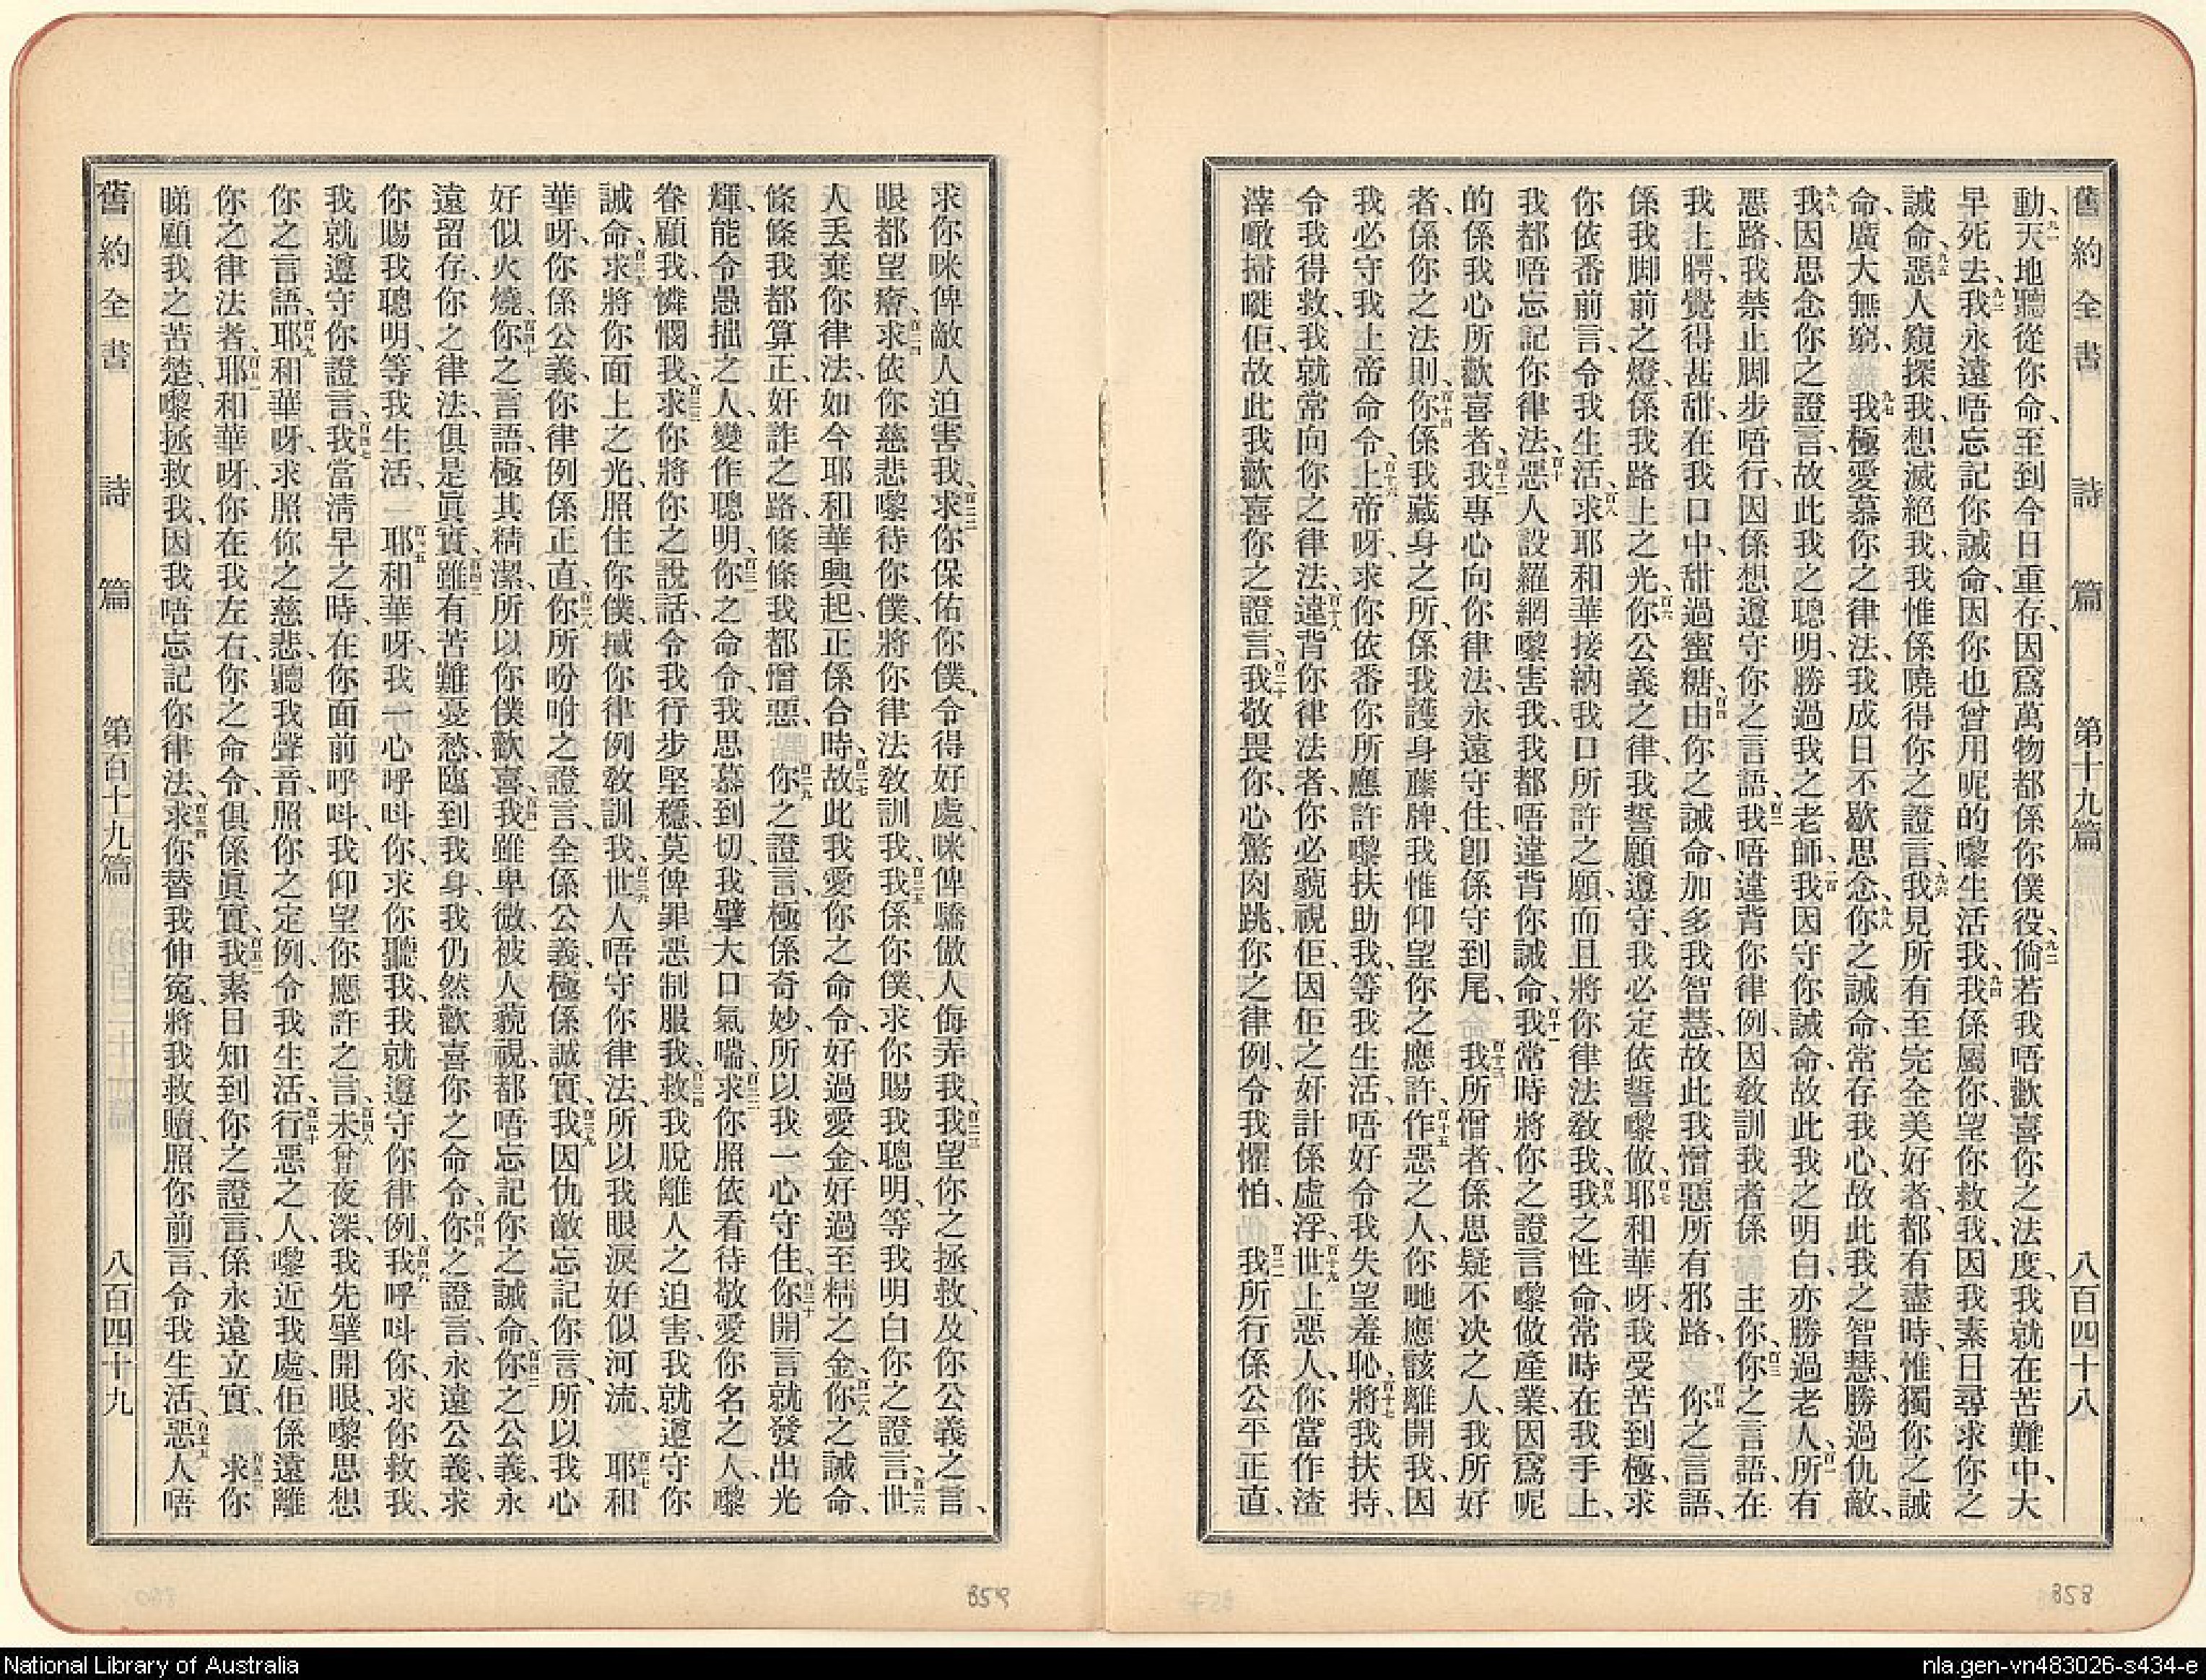 舊約全書 詩篇 第十九篇 八百四十八
動、九一天地聽從你命、至到今日重存、因爲萬物都係你僕役、九二倘若我唔歡喜你之法度、我就在苦難中、大
早死去、九三我永遠唔忘記你誡命、因你也曾用呢的嚟生活我、九四我係屬你、望你救我、因我素日尋求你之
誡命、九五惡人窺探我、想滅絕我、我惟係曉得你之證言、九六我見所有至完全美好者、都有盡時、惟獨你之誡
命、廣大無窮、九七我極愛慕你之律法、我成日不歇思念、九八你之誡命、常存我心、故此我之智慧、勝過仇敵、
九九我因思念你之證言、故此我之聰明、勝過我之老師、一百我因守你誡命、故此我之明白、亦勝過老人、百一所有
惡路、我禁止脚步唔行、因係想遵守你之言語、百二我唔違背你律例、因敎訓我者係主你、百三你之言語、在
我上腭、覺得甚甜、在我口中、甜過蜜糖、百四由你之誡命、加多我智慧、故此我憎惡所有邪路、百五你之言語、
係我脚前之燈、係我路上之光、百六你公義之律、我誓願遵守、我必定依誓嚟做、百七耶和華呀、我受苦到極、求
你依番前言、令我生活、百八求耶和華接納我口所許之願、而且將你律法敎我、百九我之性命、常時在我手上、
我都唔忘記你律法、百十惡人設羅網嚟害我、我都唔違背你誡命、百十一我常時將你之證言嚟做產業、因爲呢
的係我心所歡喜者、百十二我專心向你律法、永遠守住、卽係守到尾、百十三我所憎者、係思疑不決之人、我所好
者、係你之法則、百十四你係我藏身之所、係我護身藤牌、我惟仰望你之應許、百十五作惡之人、你哋應該離開我、因
我必守我上帝命令、百十六上帝呀、求你依番你所應許嚟扶助我、等我生活、唔好令我失望羞恥、百十七將我扶持、
令我得救、我就常向你之律法、百十八違背你律法者、你必藐視佢、因佢之奸計係虛浮、百十九世上惡人、你當作渣
滓噉掃嘥佢、故此我歡喜你之證言、百二十我敬畏你、心驚肉跳、你之律例、令我懼怕、百二一我所行係公平正直、
求你咪俾敵人迫害我、百二二求你保佑你僕、令得好處、咪俾驕傲人侮弄我、百二三我望你之拯救、及你公義之言、
眼都望瘠、百二四求依你慈悲嚟待你僕、將你律法敎訓我、百二五我係你僕、求你賜我聰明、等我明白你之證言、百二六世
人丢棄你律法、如今耶和華興起、正係合時、百二七故此我愛你之命令、好過愛金、好過至精之金、百二八你之誡命、
條條我都算正、奸詐之路、條條我都憎惡、百二九你之證言、極係奇妙、所以我一心守住、百三十你開言就發出光
輝、能令愚拙之人、變作聰明、百三一你之命令、我思慕到切、我擘大口氣喘、百三二求你照依看待敬愛你名之人、嚟
眷顧我、憐憫我、百三三求你將你之說話、令我行步堅穩、莫俾罪惡制服我、百三四救我脫離人之迫害、我就遵守你
誡命、百三五求將你面上之光、照住你僕、搣你律例敎訓我、百三六世人唔守你律法、所以我眼淚好似河流、百三七耶和
華呀、你係公義、你律例係正直、百三八你所吩咐之證言、全係公義、極係誠實、百三九我因仇敵忘記你言、所以我心
好似火燒、百四十你之言語、極其精潔、所以你僕歡喜、百四一我雖卑微、被人藐視、都唔忘記你之誡命、百四二你之公義、永
遠留存、你之律法、俱是眞實、百四三雖有苦難憂愁、臨到我身、我仍然歡喜你之命令、百四四你之證言、永遠公義、求
你賜我聰明、等我生活、百四五耶和華呀、我一心呼呌你、求你聽我、我就遵守你律例、百四六我呼呌你、求你救我、
我就遵守你證言、百四七我當淸早之時、在你面前呼呌、我仰望你應許之言、百四八未曾夜深、我先擘開眼、嚟思想
你之言語、百四九耶和華呀、求照你之慈悲、聽我聲音、照你之定例、令我生活、百五十行惡之人、嚟近我處、佢係遠離
你之律法者、百五一耶和華呀、你在我左右、你之命令、俱係眞實、百五二我素日知到你之證言、係永遠立實、百五三求你
睇顧我之苦楚、嚟拯救我、因我唔忘記你律法、百五四求你替我伸寃、將我救贖、照你前言、令我生活、百五五惡人唔
舊約全書 詩篇 第百十九篇 八百四十九
858
859
National Library of Australia
nla.gen-vn483026-s434-e